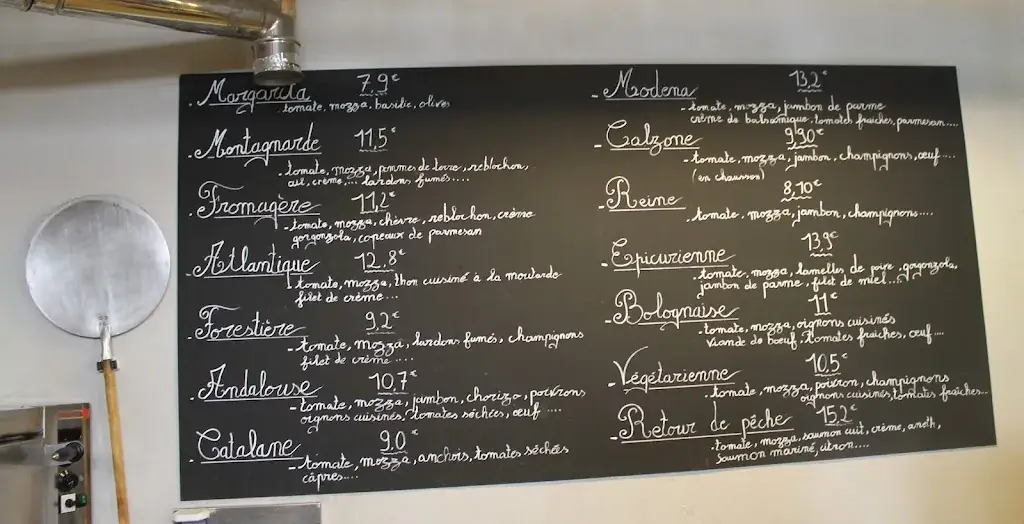 . Margarita 7,9€
tomate, mozza, basilic, olives
. Montagnarde 11,5€
- tomate, mozza, pommes de terre, reblochon,
ail, crème, ... lardons fumés....
. Fromagère 11,2€
- tomate, mozza, chèvre, reblochon, crème
gorgonzola, copeaux de parmesan
. Atlantique 12,8€
tomate, mozza, thon cuisiné à la moutarde
filet de crème...
. Forestière 9,2€
- tomate, mozza, lardons fumés, champignons
filet de crème ....
. Andalouse 10,7€
- tomate, mozza, jambon, chorizo, poivrons
oignons cuisinés, tomates séchées, œuf ....
. Catalane 9,0€
- tomate, mozza, anchois, tomates séchées
câpres...
- Modena 13,2€
- tomate, mozza, jambon de parme
crème de balsamique, tomates fraiches, parmesan....
- Calzone 9,90€
- tomate, mozza, jambon, champignons, œuf....
(en chausson)
- Reine 8,10€
. tomate, mozza, jambon, champignons....
. Epicurienne 13,9€
. tomate, mozza, lamelles de poire, gorgonzola,
jambon de parme, filet de miel....
- Bolognaise 11€
. tomate, mozza, oignons cuisinés
viande de boeuf, tomates fraiches, œuf....
. Végétarienne 10,5€
. tomate, mozza, poivron, champignons
oignons cuisinés, tomates fraiches...
. Retour de pêche 15,2€
. tomate, mozza, saumon cuit, crème, aneth,
saumon mariné, citron....